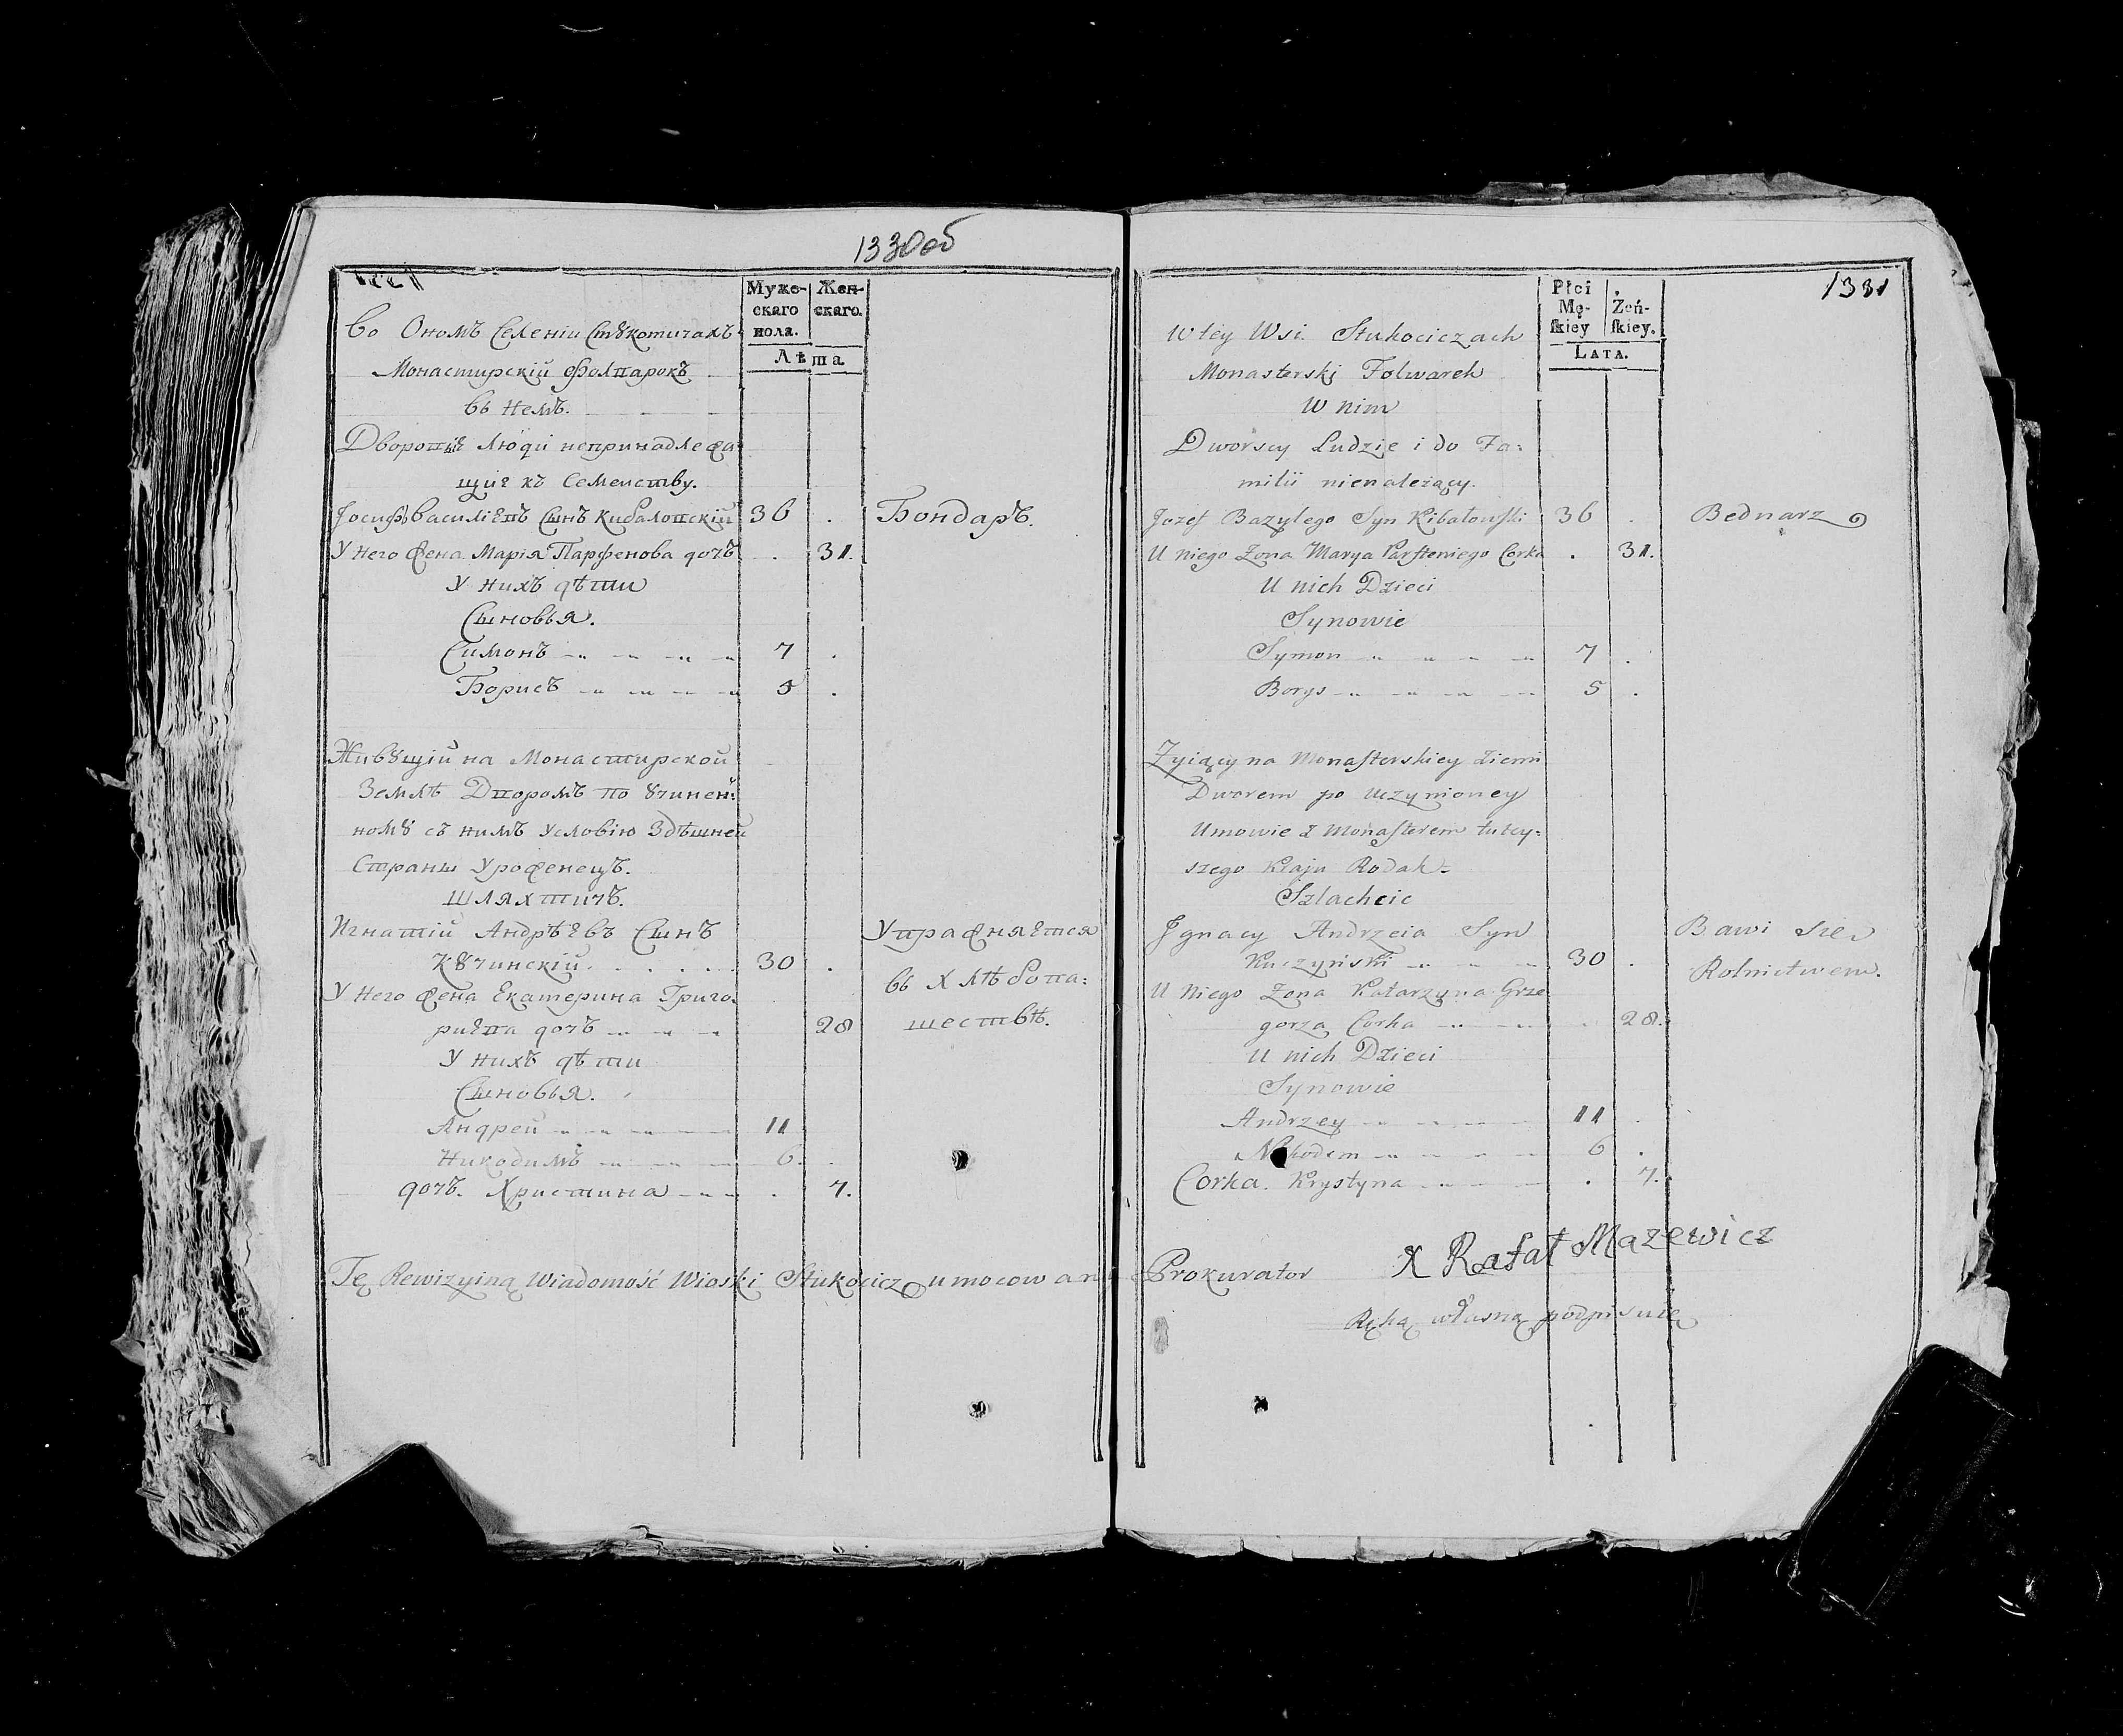 1330об
Муже-
скаго
пола.
Жен-
скаго.
Лѣта.
Во Ономъ Селеніи Стꙋкотичахъ
Монастирскій Фолварокъ
въ Немъ.
Дворовые Люди непринадлежа-
щие къ Семейству.
Іосифъ Василіевъ Сынъ Кибаловскій 36 . Бондаръ.
У Него Жена Марія Парфенова дочъ . 31.
У нихъ дѣти
Сыновья.
Симонъ 7 .
Борисъ 5 .
Живꙋщій на Монастирской
Землѣ Дворомъ по ꙋчинен-
номꙋ съ нимъ Условію Здѣшней
Страны Уроженецъ.
Шляхтичъ.
Игнатій Андрѣевъ Сынъ
Кꙋчинскій 30 .
Упражняется
въ Хлѣбопа:
шествѣ.
У Него Жена Екатерина Григо-
риева дочъ 28
У Нихъ дѣти
Сыновья.
Андрей 11
Никодимъ 6.
дочъ. Христина . 7.
Tę Rewizyiną Wiadomość Wioski Stukocicz umocowany Prokurator X Rafał Mazewicz
Ręką własną podpisuię
1331
Płci
Mę-
skiey
Żeń-
skiey.
Lata.
W tey Wsi Stukociczach
Monasterski Folwarek
W nim
Dworscy Ludzie i do Fa:
milii nienależący.
Jozef Bazylego Syn Kibałowski 36 . Bednarz
U niego Żona Marya Parfteniego Corka . 31.
U nich Dzieci
Synowie
Symon 7 .
Borys 5 .
Żyiący na Monasterskiey Ziemi
Dworem po Uczynioney
Umowie z Monasterem tutey:
szego Kraju Rodak-
Szlachcic
Jgnacy Andrzeia Syn
Kuczyński 30 .
Bawi się
Rolnictwem.
U Niego Zona Katarzyna Grze
gorza Corka 28.
U nich Dzieci
Synowie
Andrzey 11 .
Nikodem 6 .
Corka. Krystyna . 7.